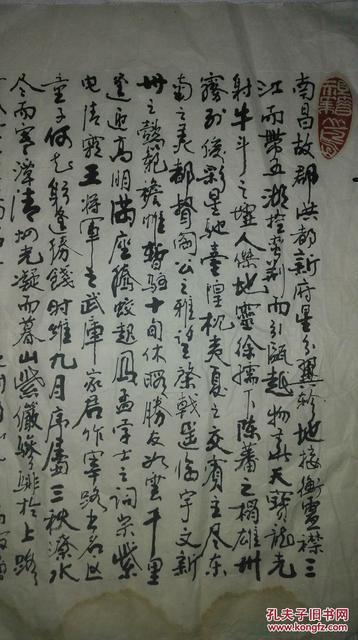 南昌故郡洪都新府星分翼轸地接衡庐襟三
江而带五湖控蛮荆而引瓯越物华天宝龙光
射牛斗之墟人杰地灵徐孺下陈蕃之榻雄州
雾列俊彩星驰台隍枕夷夏之交宾主尽东
南之美都督阎公之雅望棨戟遥临宇文新
州之懿范襜帷暂驻十旬休暇胜友如云千里
逢迎高朋满座腾蛟起凤孟学士之词宗紫
电清霜王将军之武库家君作宰路出名区
童子何知躬逢胜饯时维九月序属三秋潦水
尽而寒潭清烟光凝而暮山紫俨骖騑于上路
孔夫子旧书网
www.kongfz.com